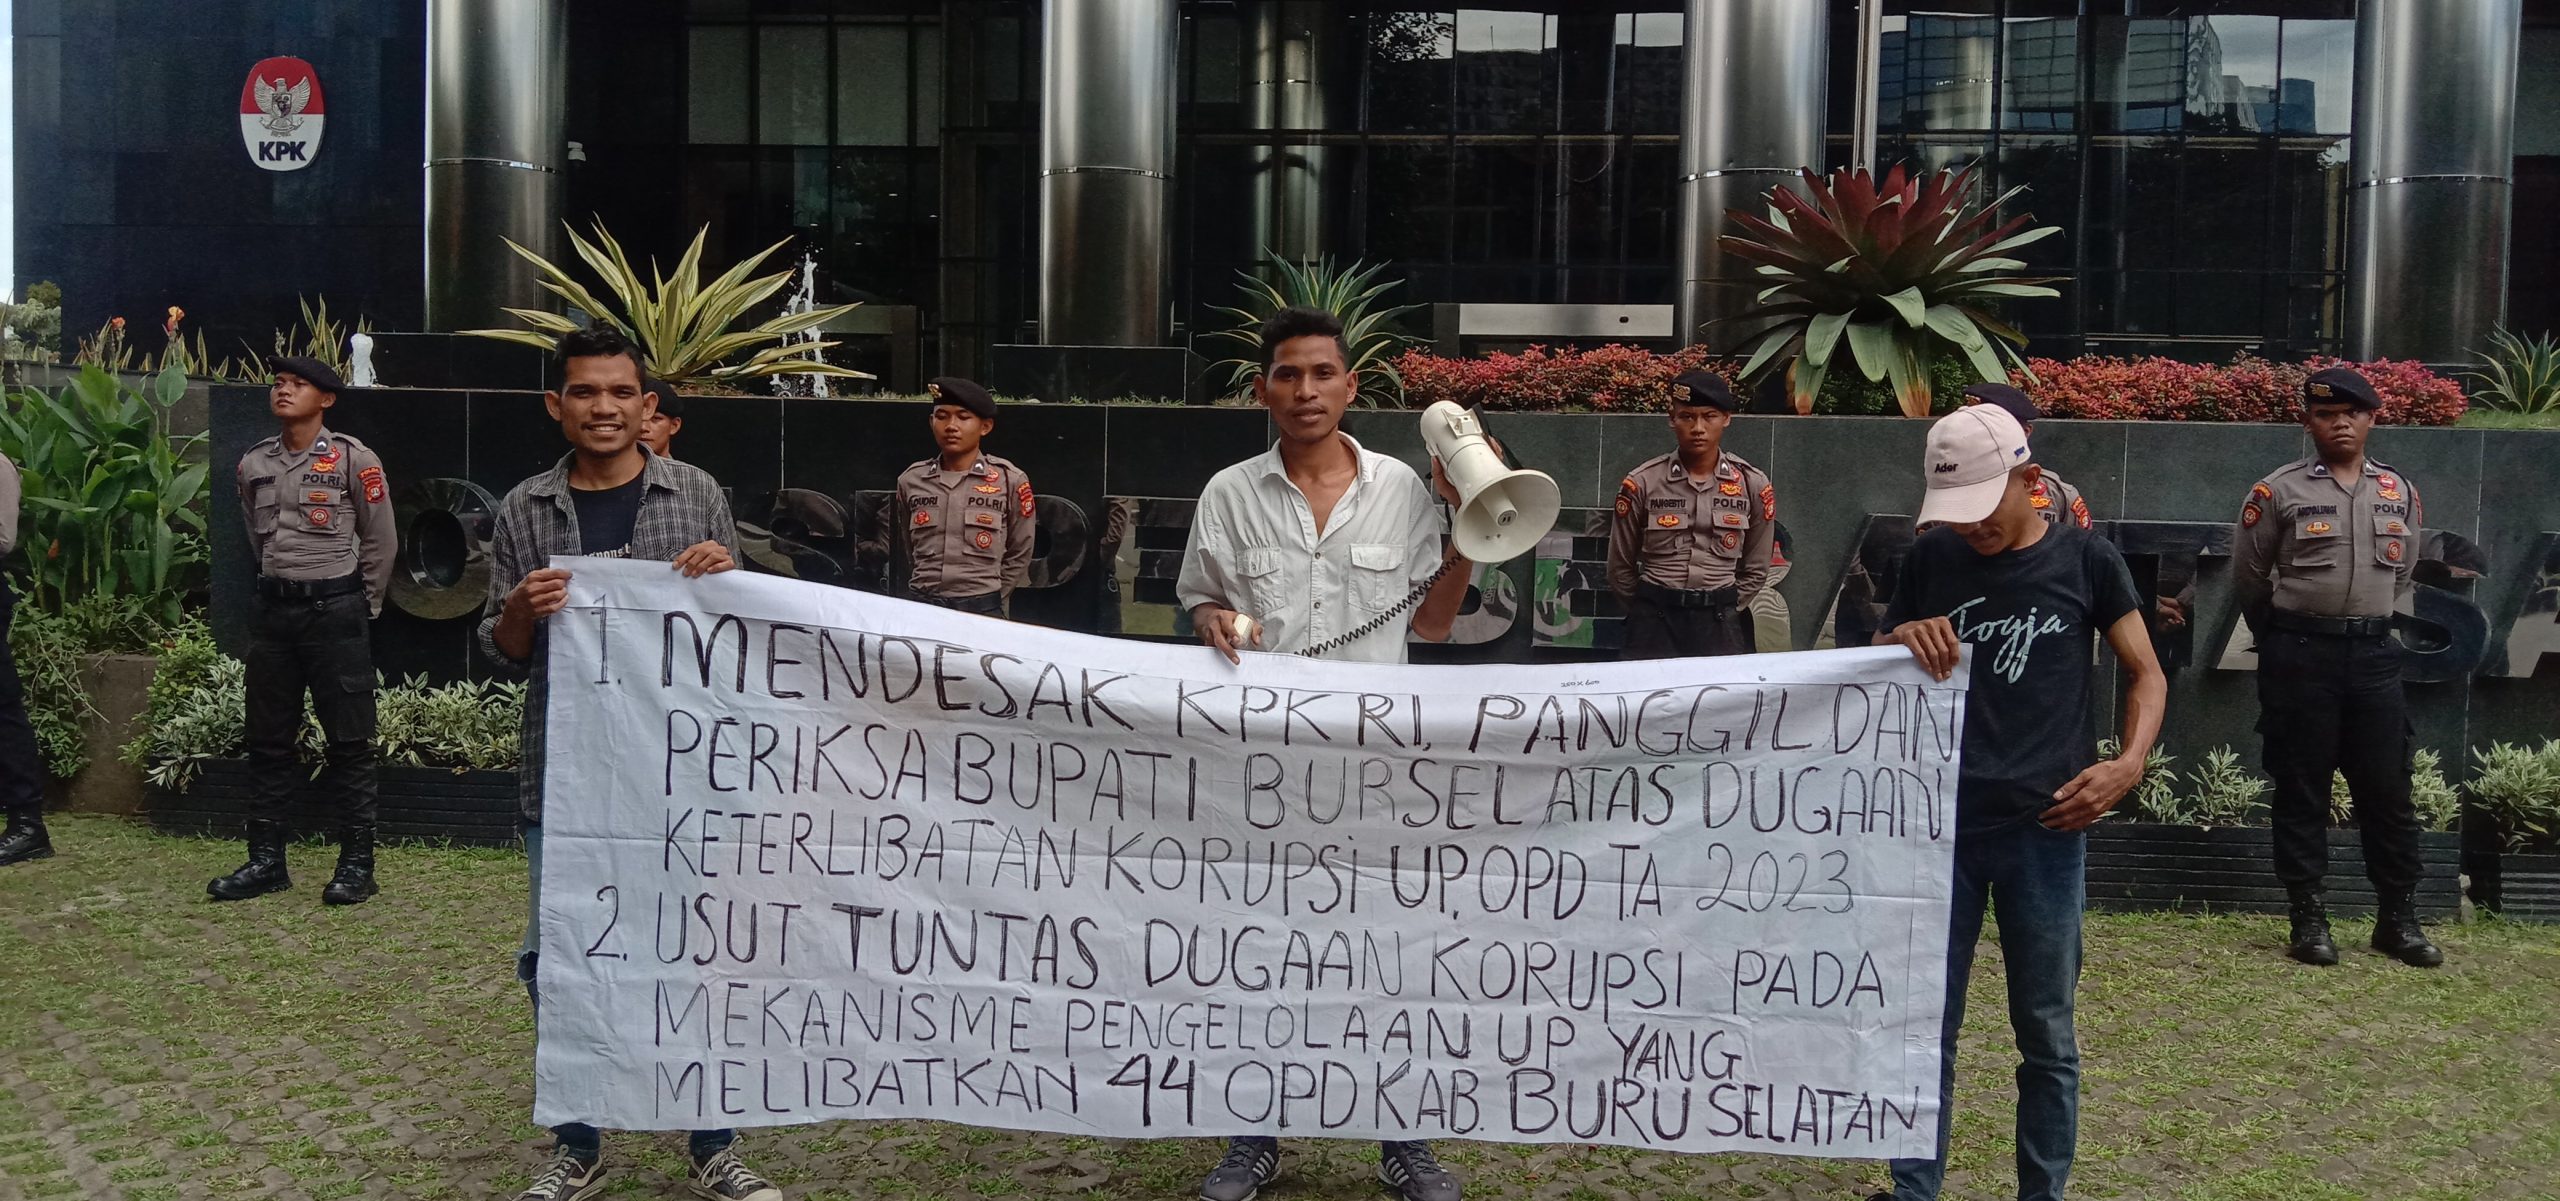 KPK
POLRI
POLRI
PANGESTU POLRI
Ader
Jogja
200 x 600
1. MENDESAK KPK RI, PANGGIL DAN
PERIKSA BUPATI BURSEL ATAS DUGAAN
KETERLIBATAN KORUPSI UP. OPD T.A 2023
2. USUT TUNTAS DUGAAN KORUPSI PADA
MEKANISME PENGELOLAAN UP YANG
MELIBATKAN 44 OPD.KAB. BURU SELATAN